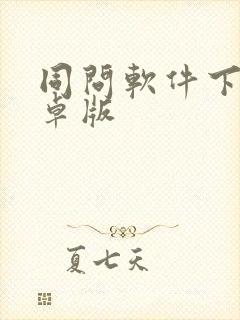 同問軟件下
卓版
夏七天